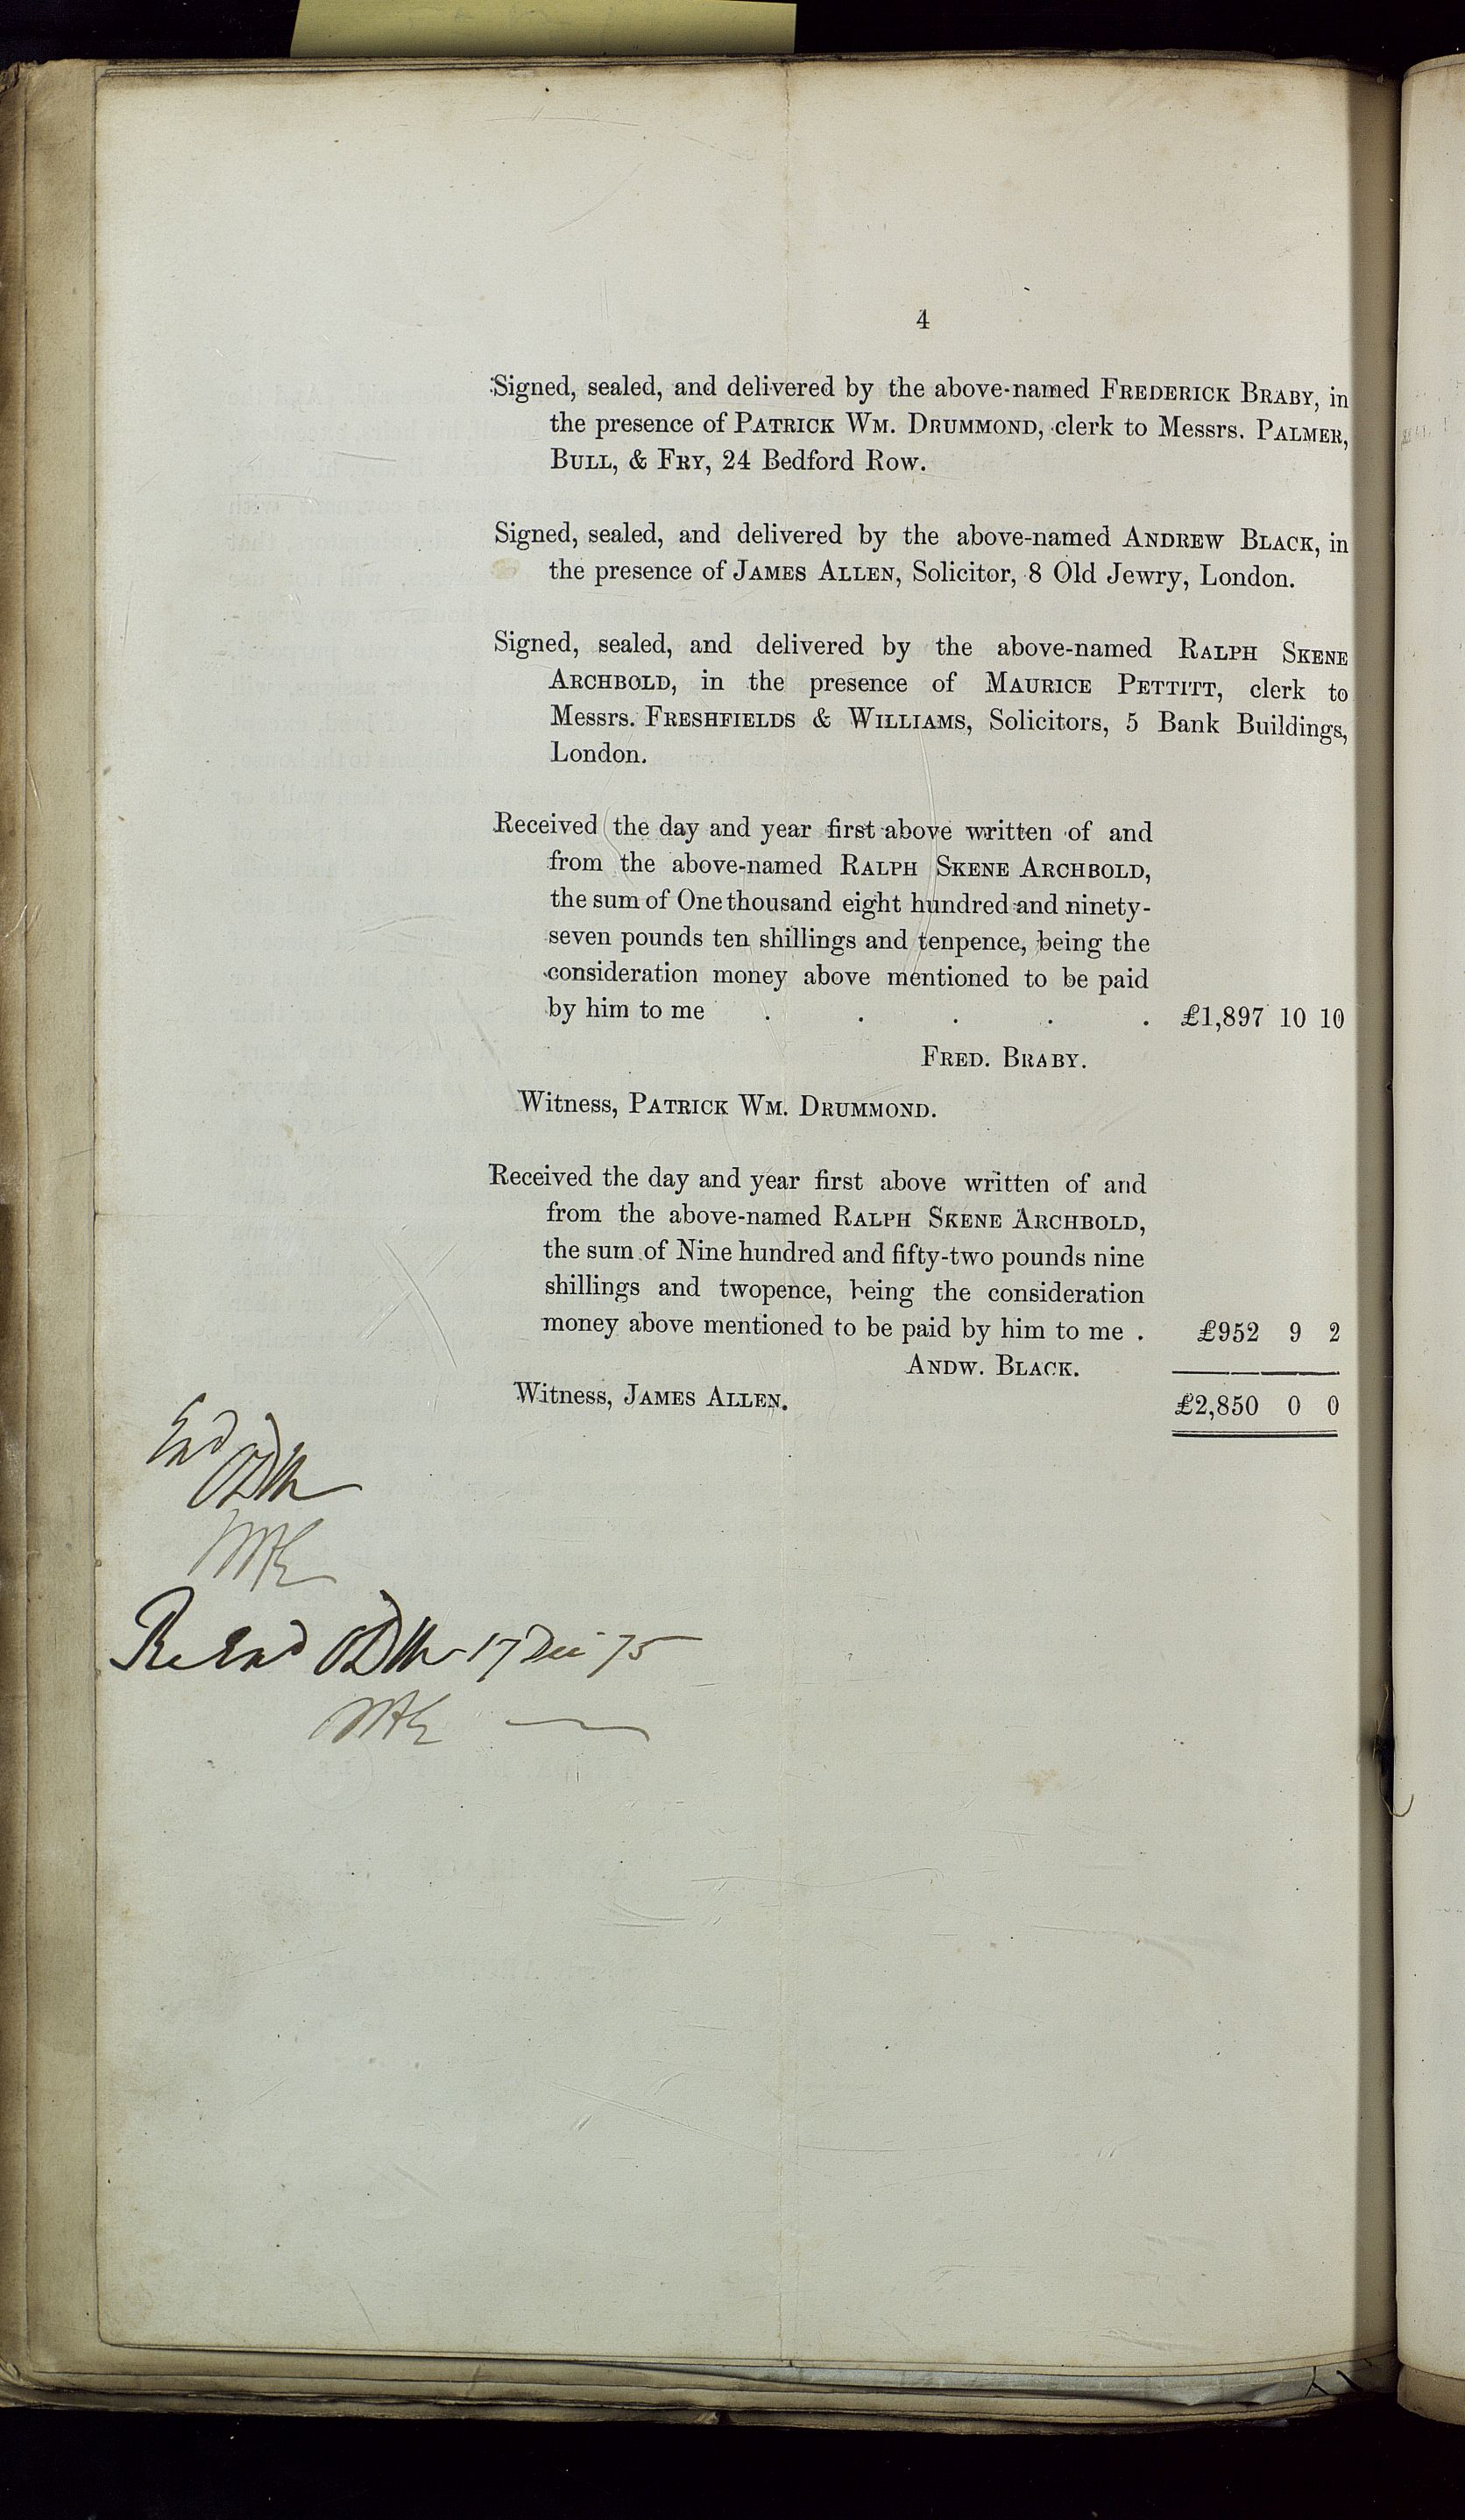 4
Signed, sealed, and delivered by the above-named FREDERICK BRABY, in
the presence of PATRICK WM. DRUMMOND, clerk to Messrs. PALMER,
BULL, & FRY, 24 Bedford Row.
Signed, sealed, and delivered by the above-named ANDREW BLACK, in
the presence of JAMES ALLEN, Solicitor, 8 Old Jewry, London.
Signed, sealed, and delivered by the above-named RALPH SKENE
ARCHBOLD, in the presence of MAURICE PETTITT, clerk to
Messrs. FRESHFIELDS & WILLIAMS, Solicitors, 5 Bank Buildings,
London.
Received the day and year first above written of and
from the above-named RALPH SKENE ARCHBOLD,
the sum of One thousand eight hundred and ninety-
seven pounds ten shillings and tenpence, being the
consideration money above mentioned to be paid
by him to me . . . . . £1,897 10 10
FRED. BRABY.
Witness, PATRICK WM. DRUMMOND.
Received the day and year first above written of and
from the above-named RALPH SKENE ARCHBOLD,
the sum of Nine hundred and fifty-two pounds nine
shillings and twopence, being the consideration
money above mentioned to be paid by him to me . £952 9 2
ANDW. BLACK.
Witness, JAMES ALLEN.
£2,850 0 0
Exd
Re Exd 17 Dec 75